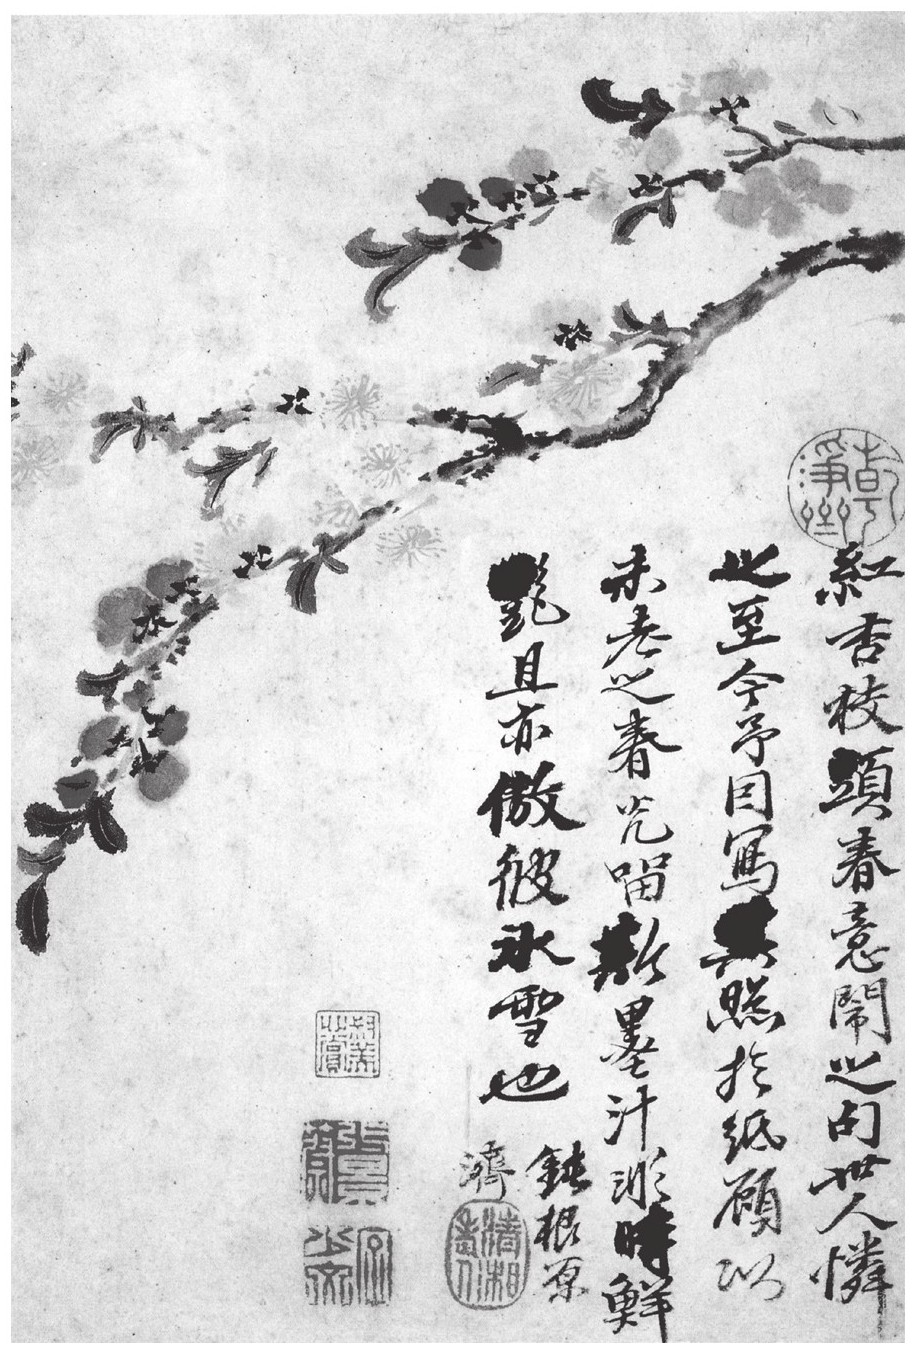 紅杏枝頭春意鬧之句世人憐
之至今予因寫其照於紙顧以
未老之春光留斯墨汁形時鮮
艷且亦傲彼冰雪也
鈍根原
濟
清湘老人